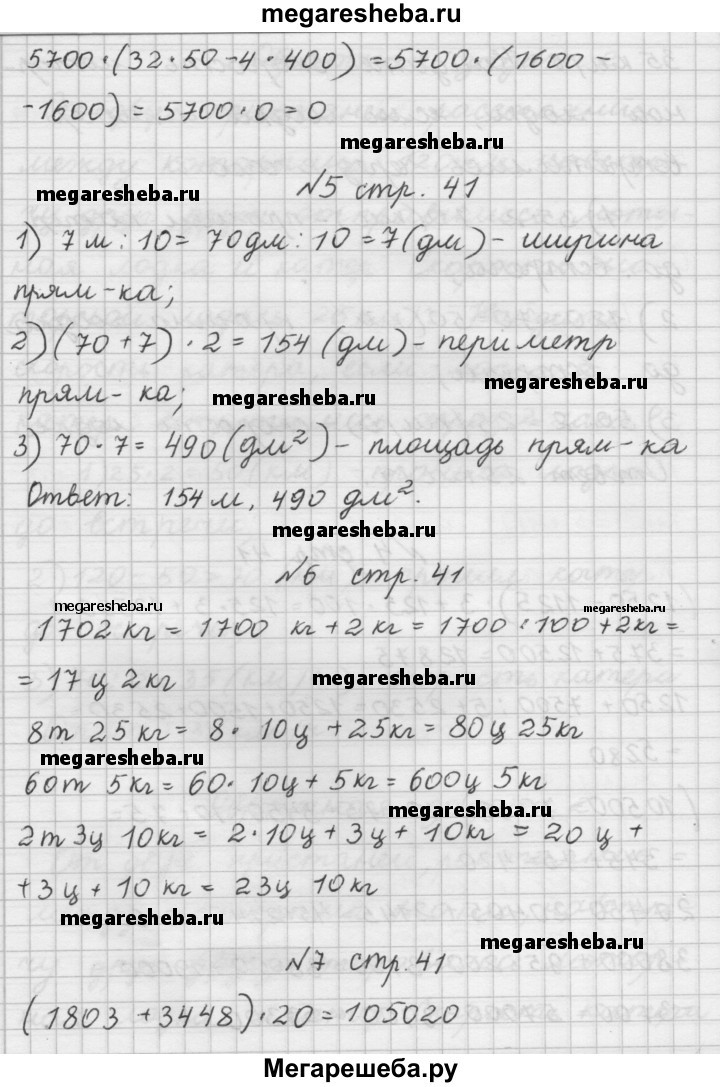 megaresheba.ru
5700·(32·50-4·400)=5700·(1600-
-1600)=5700·0=0
megaresheba.ru
megaresheba.ru
№5 стр. 41
1) 7м:10=70дм:10=7(дм)- ширина
прям-ка;
2)(70+7)·2=154(дм)-периметр
megaresheba.ru
прям-ка;
megaresheba.ru
3) 70·7=490(дм²)- площадь прям-ка
Ответ: 154м, 490 дм².
megaresheba.ru
№6 стр. 41
megaresheba.ru
megaresheba.ru
1702кг=1700 кг+2кг=1700:100+2кг=
=17ц 2кг
8т 25кг=8·10ц+25кг=80ц 25кг
megaresheba.ru
60т 5кг=60·10ц+5кг=600ц 5кг
megaresheba.ru
2т 3ц 10кг=2·10ц+3ц+10кг=20ц+
+3ц+10кг=23ц 10кг
megaresheba.ru
megaresheba.ru
№7 стр.41
(1803+3448)·20=105020
Мегарешеба.ру